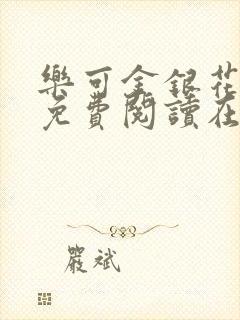 樂可金銀花
免費閱讀在
嚴斌